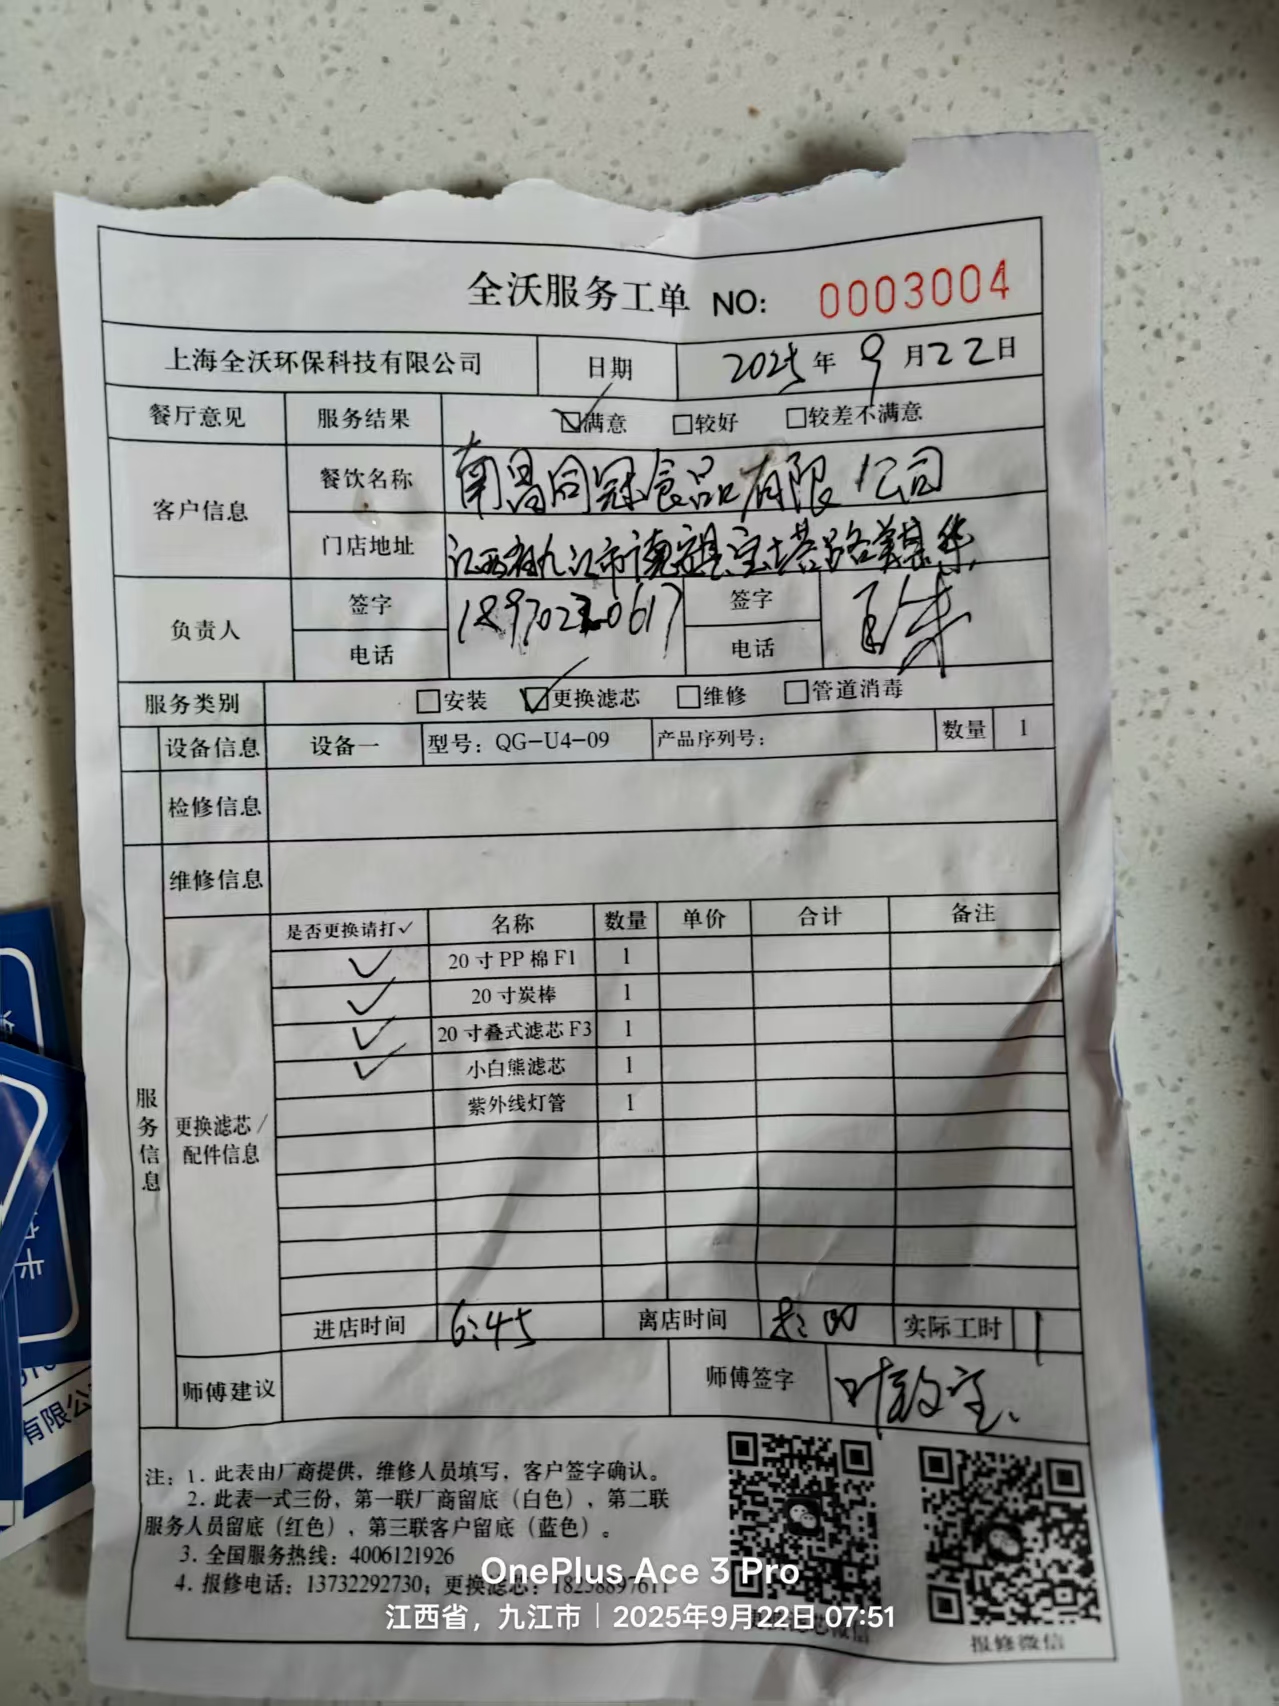 全沃服务工单 NO: 0003004
上海全沃环保科技有限公司 日期 2025年9月22日
餐厅意见 服务结果 ☑满意 □较好 □较差不满意
客户信息 餐饮名称 南昌同冠食品有限公司
门店地址 江西省九江市德安县宝塔路
负责人 签字 签字
电话 电话
服务类别 □安装 ☑更换滤芯 □维修 □管道消毒
设备信息 设备一 型号：QG-U4-09 产品序列号： 数量 1
检修信息
维修信息
服务信息
更换滤芯/配件信息
是否更换请打✓ 名称 数量 单价 合计 备注
✓ 20寸PP棉F1 1
✓ 20寸炭棒 1
✓ 20寸叠式滤芯F3 1
✓ 小白熊滤芯 1
紫外线灯管 1
进店时间 6:45 离店时间 实际工时 1
师傅建议 师傅签字
注：1. 此表由厂商提供，维修人员填写，客户签字确认。
2. 此表一式三份，第一联厂商留底（白色），第二联
服务人员留底（红色），第三联客户留底（蓝色）。
3. 全国服务热线：4006121926
4. 报修电话：13732292730；更换滤芯：
报修微信
OnePlus Ace 3 Pro
江西省，九江市｜2025年9月22日 07:51
有限公
卡